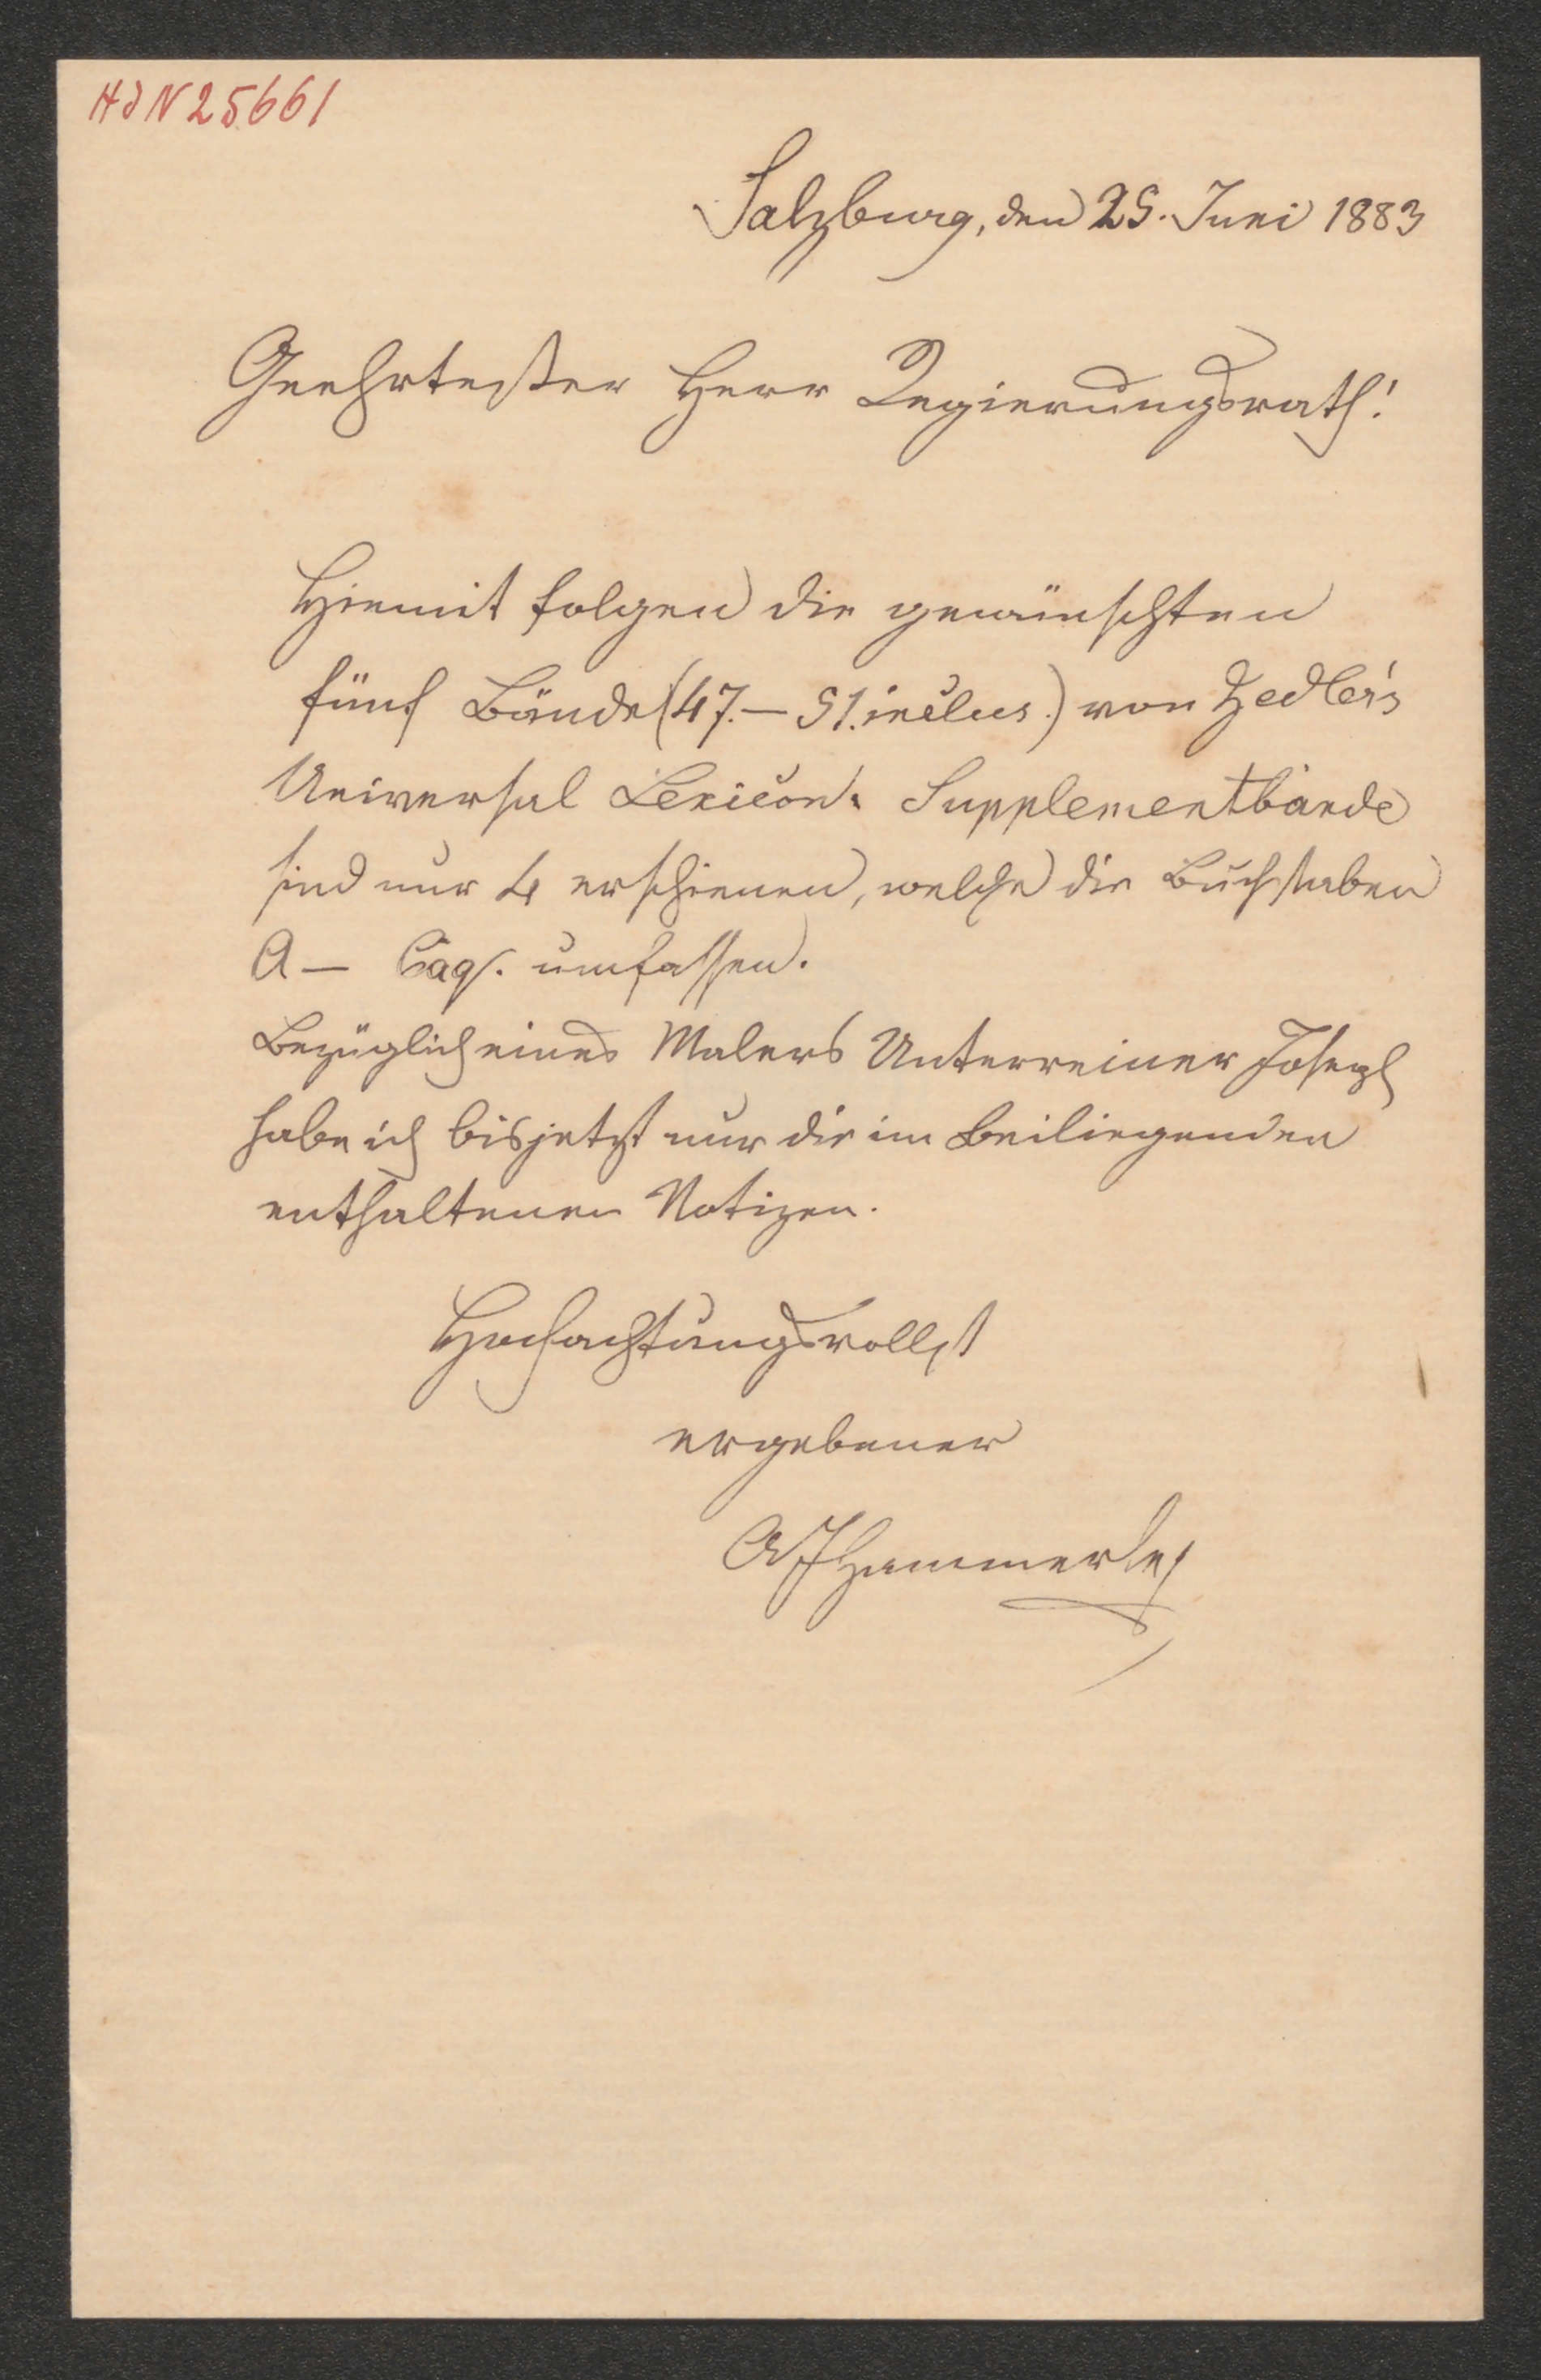 HdN 25661
Salzburg, den 25. Juni 1883
Geehrtester Herr Regierungsrath!
Hiemit folgen die gewünschten
fünf Bände (47. – 51. inclus.) von Zedler's
Universal Lexicon. Supplementbände
sind nur 4 erschienen, welche die Buchstaben
A – Caq. umfassen.
Bezüglich eines Malers Unterreiner Joseph
habe ich bis jetzt nur die im Beiliegenden
enthaltenen Notizen.
Hochachtungsvollst
ergebener
AJHammerle